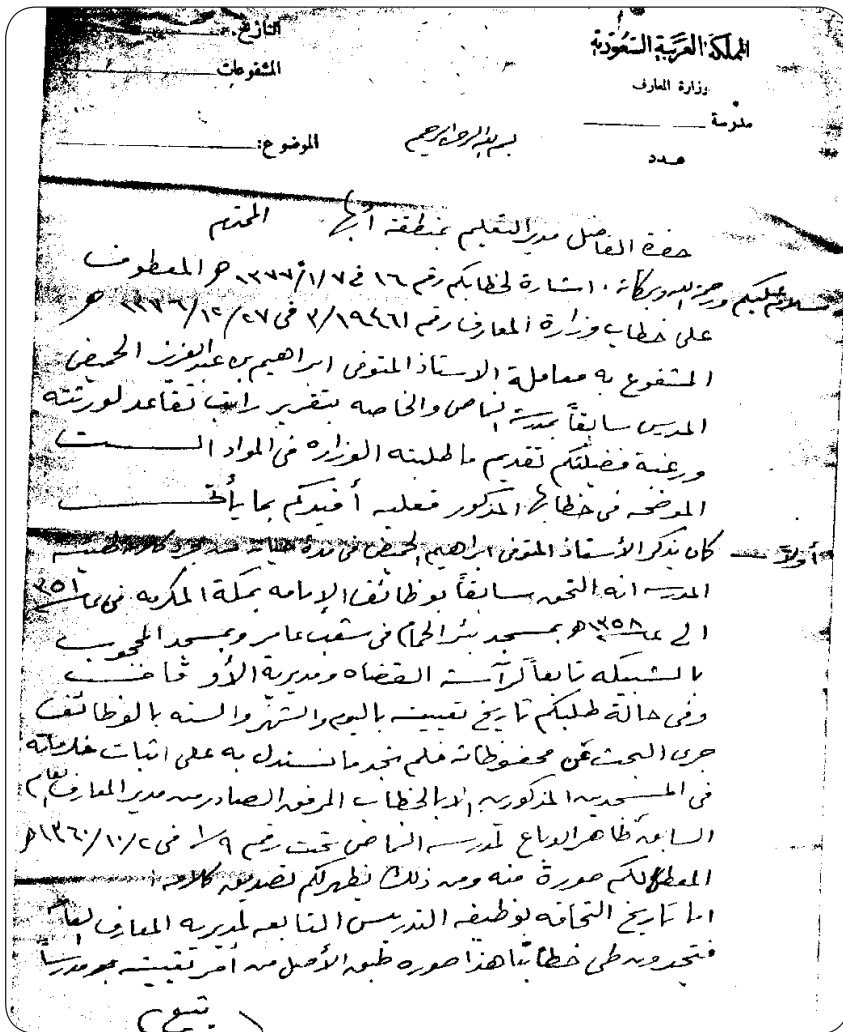 المملكة العربية السعودية
وزارة المعارف
مدرسة
عدد
التاريخ:
المشفوعات
الموضوع:
بسم الله الرحمن الرحيم
حضرة الفاضل مدير التعليم بمنطقة أبها المحترم
سلام عليكم ورحمة الله وبركاته . اشارة لخطابكم رقم ١٦ في ١٣٧٧/١/٧ هـ المعطوف
على خطاب وزارة المعارف رقم ٣/١٩٤٤٦١ في ١٣٧٦/١٢/٢٧ هـ
المشفوع به معاملة الاستاذ المتوفى ابراهيم بن عبدالعزيز الحميضي
المدرس سابقاً بمدرسة النماص والخاصه بتقرير راتب تقاعد لورثته
ورغبة فضيلتكم تقديم ما طلبته الوزاره في المواد الست
الموضحه في خطابها المذكور فعليه أفيدكم بما يأتي
أولاً – كان يذكر الأستاذ المتوفى ابراهيم الحميضي في مدة حياته
المدرسه انه التحق سابقاً بوظائف الإمامه بمكة المكرمه في عام ١٣٥١
الى عام ١٣٥٨ هـ بمسجد بئر الحمام في شعب عامر وبمسجد المحجوب
بالشبيكه تابعاً لرآسة القضاه ومديرية الأوقاف
وفي حالة طلبكم تاريخ تعيينه باليوم والشهر والسنه بالوظائف
جرى البحث عن محفوظاته فلم نجد ما نستدل به على اثبات خدماته
في المسجدين المذكورين الا بالخطاب المرفق الصادر من مدير المعارف العام
السابق طاهر الدباغ لمدرسه النماص تحت رقم ١/٩ في ١٣٦٠/١٠/٢ هـ
المعطى لكم صورة منه ومن ذلك يظهر لكم تصديق كلامه .
اما تاريخ التحاقه بوظيفه التدريس التابعه لمديريه المعارف العامة
فتجدون طي خطابنا هذا صوره طبق الأصل من أمر تعيينه مدرساً
(يتبع)